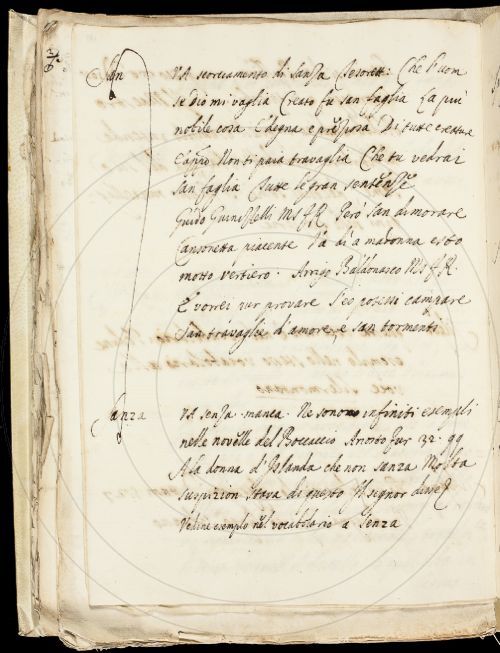 San VA scorciamento di Sanza Tesorett: Che l'uom
se dio mi vaglia Creato fu san faglia La più
nobile cosa E degna e pręziosa Di tutte creature
E appo Non ti paia travaglia Che tu vedrai
san faglia Tutte le gran sentęnze
Guido Guinizzelli Ms f R Però san dimorare
Cansonetta piacente Và di a madonna esto
motto vertiero. Arrigo Baldonasco Ms f R.
E vorrei pur provare S'eo potessi campare
San travaglie d'amore, e san tormenti
Sanza VA senza. manca. Ne sono infiniti esempli
nelle novelle del Boccaccio Ariosto Fur 32. 99
A la donna d'Islanda che non sanza Molta
suspizion stava di questo Il signor disse
Vedine esemplo nel vocabolario a Senza